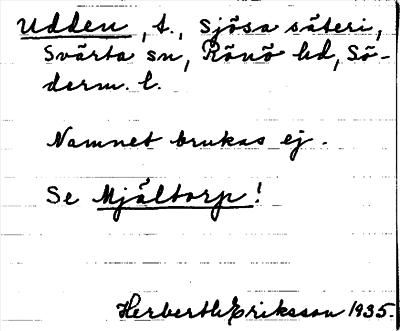 Udden, t., Sjösa säteri,
Svärta sn, Rönö hd, Sö-
derm. l.
Namnet brukas ej.
Se Mjältorp!
Herberth Eriksson 1935.